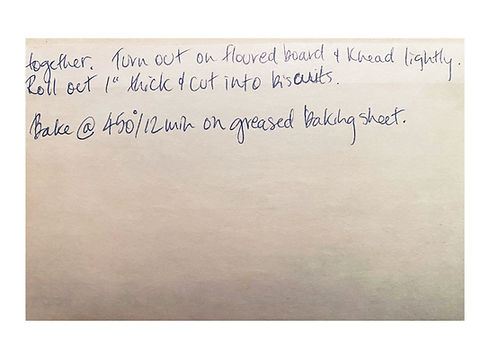 together. Turn out on floured board & Knead lightly.
Roll out 1" thick & cut into biscuits.
Bake @ 450°/12 min on greased baking sheet.